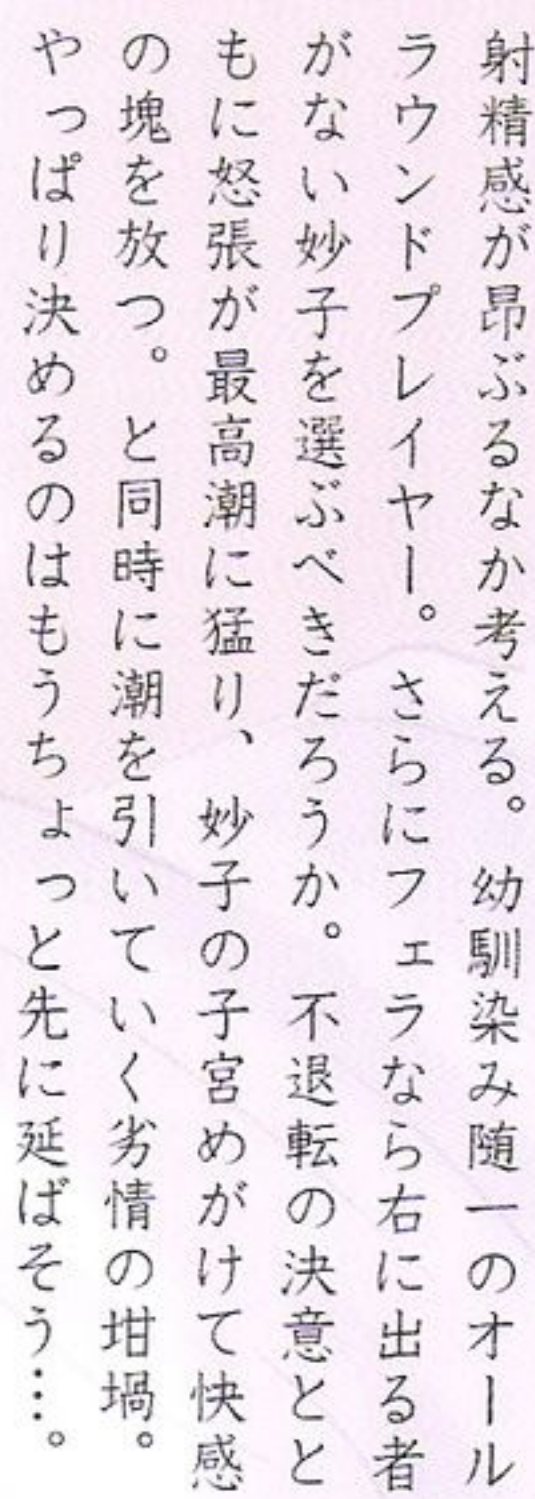 射精感が昂ぶるなか考える。幼馴染み随一のオール
ラウンドプレイヤー。さらにフェラなら右に出る者
がない妙子を選ぶべきだろうか。不退転の決意とと
もに怒張が最高潮に猛り、妙子の子宮めがけて快感
の塊を放つ。と同時に潮を引いていく劣情の坩堝。
やっぱり決めるのはもうちょっと先に延ばそう…。